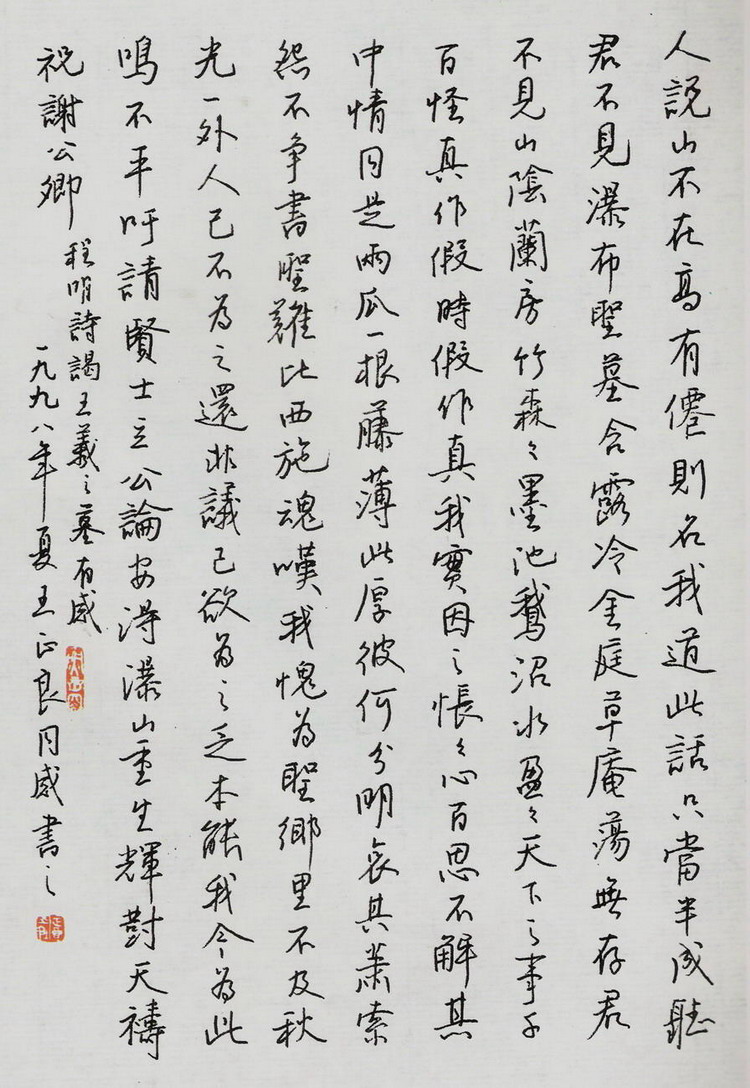 人說山不在高有僊則名我道此話只當半成聽
君不見瀑布聖墓含露冷金庭草庵蕩無存君
不見山陰蘭房竹森々墨池鵝沼水盈々天下之事千
百怪真作假時假作真我實因之悵々心百思不解其
中情同是兩瓜一根藤薄此厚彼何分明哀其萧索
怨不争書聖難比西施魂嘆我愧為聖鄉里不及秋
光一外人已不為之還非議已欲為之乏本能我今為此
鳴不平吁請賢士立公論安得瀑山重生輝對天禱
祝謝公卿
程明詩謁王羲之墓有感
一九九八年夏王正良同感書之